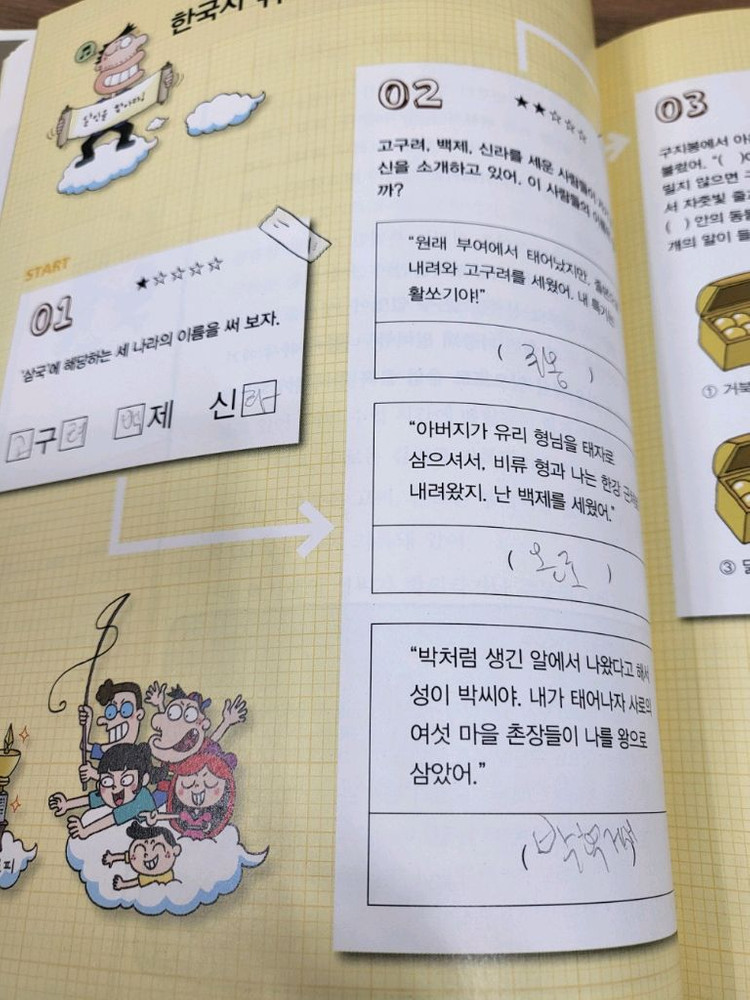 한국사
보물을 찾아라!
START
01
★☆☆☆☆
'삼국'에 해당하는 세 나라의 이름을 써 보자.
고구려 백제 신라
02
★★☆☆☆
고구려, 백제, 신라를 세운 사람들이
신을 소개하고 있어. 이 사람들의 이름은
까?
"원래 부여에서 태어났지만,
내려와 고구려를 세웠어. 내 특기는
활쏘기야!"
"아버지가 유리 형님을 태자로
삼으셔서, 비류 형과 나는 한강 근처로
내려왔지. 난 백제를 세웠어."
( 온조 )
"박처럼 생긴 알에서 나왔다고 해서
성이 박씨야. 내가 태어나자 사로의
여섯 마을 촌장들이 나를 왕으로
삼았어."
(박혁거세
03
구지봉에서
불렀어. "( )
밀지 않으면
서 자줏빛 줄
( ) 안의 동물
개의 알이
① 거북
③
피